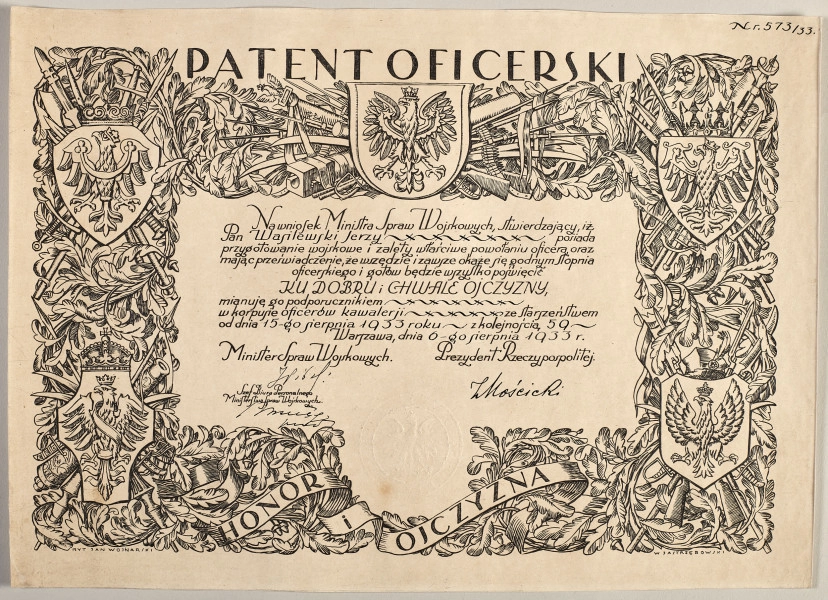 Nr. 573/33.
PATENT OFICERSKI
Na wniosek Ministra Spraw Wojskowych, stwierdzający, iż
Pan Wasilewski Jerzy posiada
przygotowanie wojskowe i zalety, właściwe powołaniu oficera, oraz
mając przeświadczenie, że wszędzie i zawsze okaże się godnym stopnia
oficerskiego i gotów będzie wszystko poświęcić
KU DOBRU i CHWALE OJCZYZNY,
mianuję go podporucznikiem
w korpusie oficerów kawalerji ze starszeństwem
od dnia 15-go sierpnia 1933 roku z kolejnością, 59
Warszawa, dnia 6-go sierpnia 1933 r.
Minister Spraw Wojskowych. Prezydent Rzeczypospolitej.
Szef Biura Personalnego
Ministerstwa Spraw Wojskowych.
I Mościcki
HONOR i OJCZYZNA
RYT. JAN WOJNARSKI
W. JASTRZĘBOWSKI